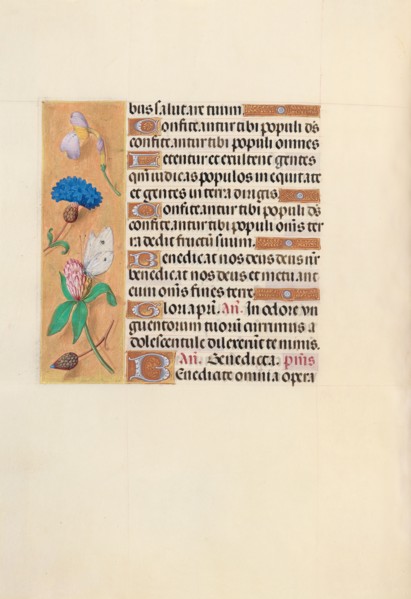 bus salutare tuum
Confiteantur tibi populi ds
confiteantur tibi populi omnes
Letentur et exultent gentes
qm iudicas populos in equitate
et gentes in terra dirigis
Confiteantur tibi populi ds
confiteantur tibi populi oms ter
ra dedit fructu suum
Benedicat nos deus deus nr
benedicat nos deus et metuant
eum oms fines terre
Gloria pri. An. In odore un
guentorum tuoru currimus a
dolescentule dilexerut te nimis.
An. Benedicta. pmis
Benedicite omnia opera